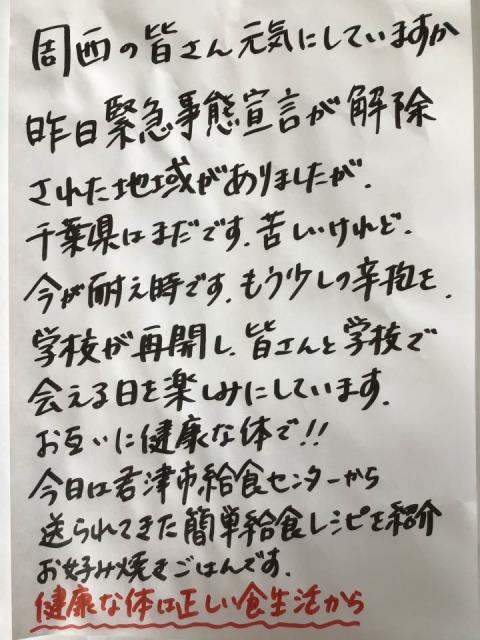 周西の皆さん元気にしていますか
昨日緊急事態宣言が解除
された地域がありましたが、
千葉県はまだです。苦しいけれど、
今が耐え時です。もう少しの辛抱を。
学校が再開し、皆さんと学校で
会える日を楽しみにしています。
お互いに健康な体で!!
今日は君津市給食センターから
送られてきた簡単給食レシピを紹介
お好み焼きごはんです。
健康な体は正しい食生活から